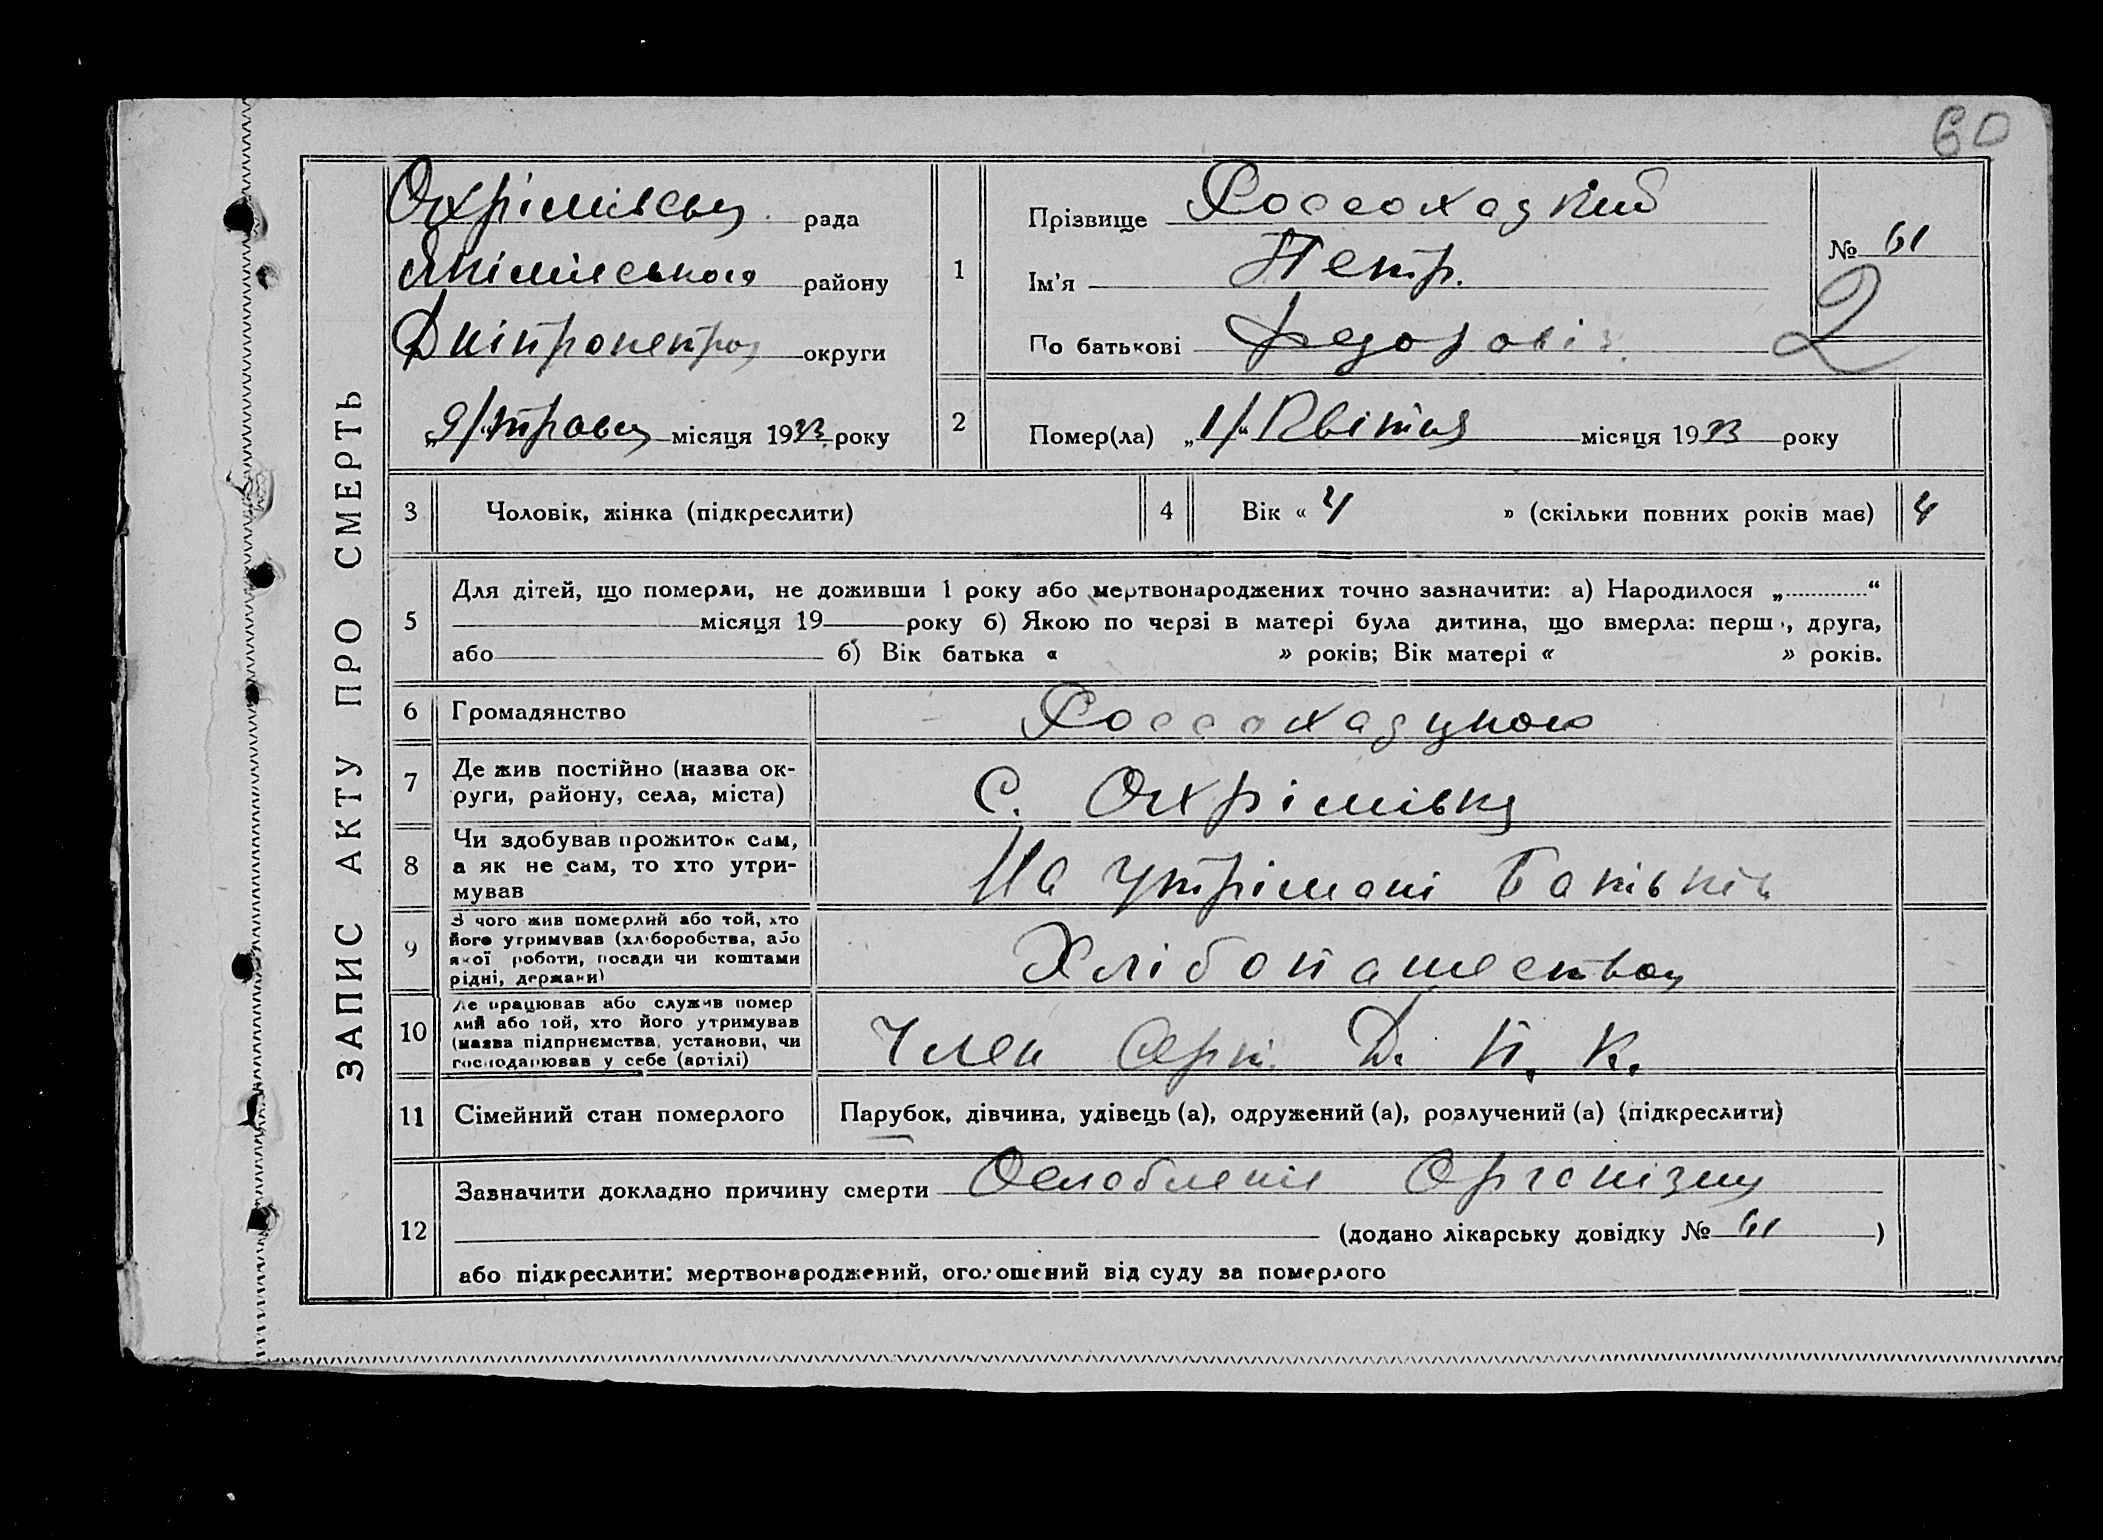 60
ЗАПИС АКТУ ПРО СМЕРТЬ
Охрімівськ рада
Якімівського району
Дніпропетров округи
„9/ травня місяця 1933 року
1
Прізвище Россохацкий
Ім'я Петр.
По батькові Федоровіч.
№ 61
2
2
Помер(ла) „1/“ Квітня місяця 1933 року
3 Чоловік, жінка (підкреслити)
4 Вік « 4 » (скільки повних років має) 4
5 Для дітей, що померли, не доживши 1 року або мертвонароджених точно зазначити: а) Народилося „ “
місяця 19 року б) Якою по черзі в матері була дитина, що вмерла: перш , друга,
або б) Вік батька « » років; Вік матері « » років.
6 Громадянство
7 Де жив постійно (назва ок-
руги, району, села, міста) С. Охрімівка
8 Чи здобував прожиток сам,
а як не сам, то хто утри-
мував На утрімані Батьків
9 З чого жив померлий або той, хто
його утримував (хліборобства, або
якої роботи, посади чи коштами
рідні, держави) Хлібопашество
10 Де працював або служив помер
лий або той, хто його утримував
(назва підприємства, установи, чи
господарював у себе (артілі) Член Д. П. К.
11 Сімейний стан померлого Парубок, дівчина, удівець (а), одружений (а), розлучений (а) (підкреслити)
12 Зазначити докладно причину смерти Ослобленіє Организму
(додано лікарську довідку № 61 )
або підкреслити: мертвонароджений, оголошений від суду за померлого